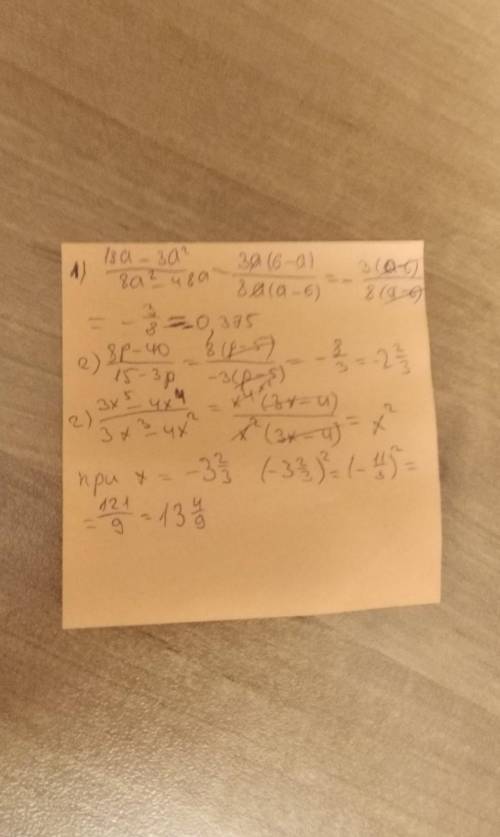 1) (18a - 3a²)/(8a² - 48a) = 3a(6-a)/8a(a-6) = - 3(a-6)/8(a-6)
= - 3/8 = -0,375
2) (8p-40)/(15-3p) = 8(p-5)/-3(p-5) = - 8/3 = -2 2/3
2) (3x⁵ - 4x⁴)/(3x³ - 4x²) = x⁴(3x-4)/x²(3x-4) = x²
при x = -3 2/3 (-3 2/3)² = (- 11/3)² =
= 121/9 = 13 4/9